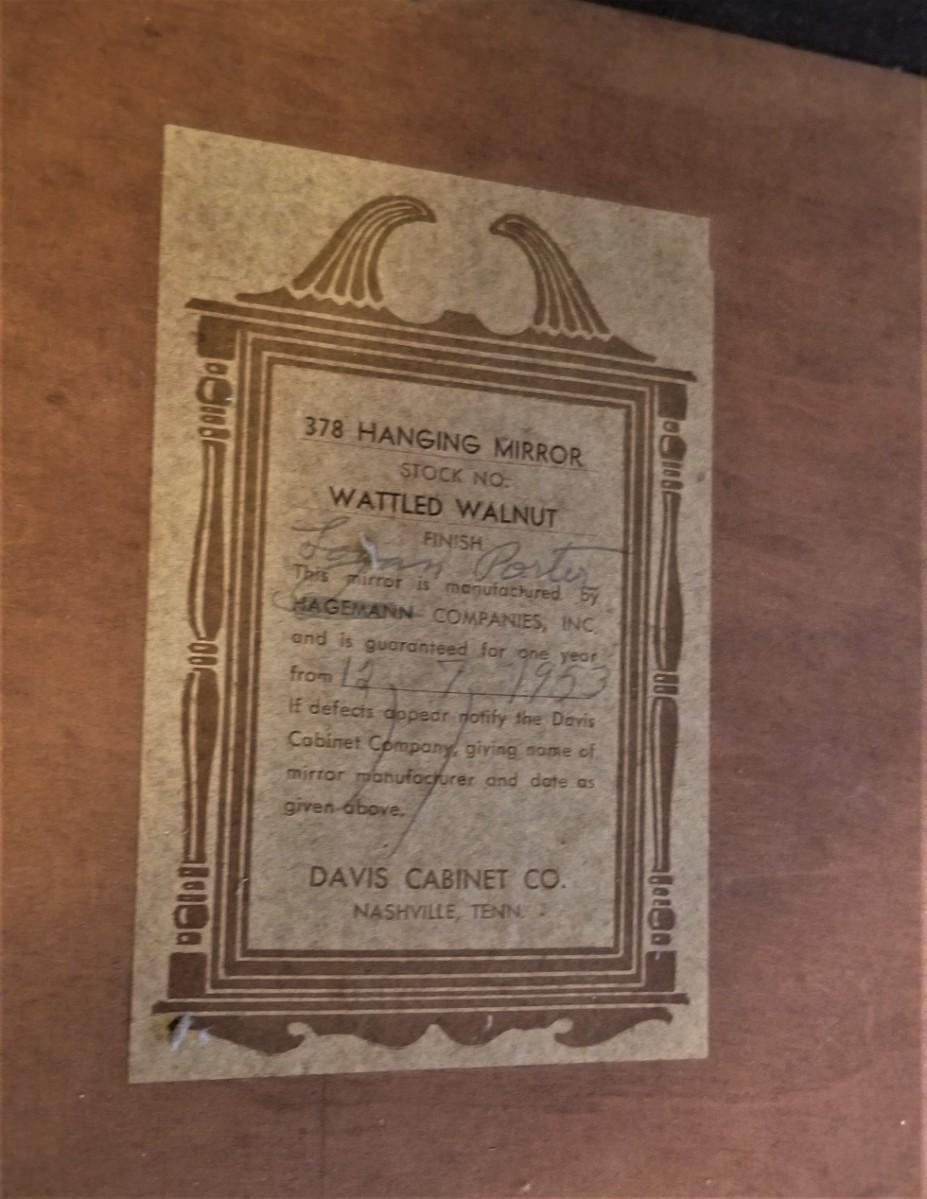 378 HANGING MIRROR
STOCK NO.
WATTLED WALNUT
FINISH
Logan Porter
This mirror is manufactured by
HAGEMANN COMPANIES, INC.
and is guaranteed for one year
from 12, 7, 1953
If defects appear notify the Davis
Cabinet Company, giving name of
mirror manufacturer and date as
given above.
DAVIS CABINET CO.
NASHVILLE, TENN.